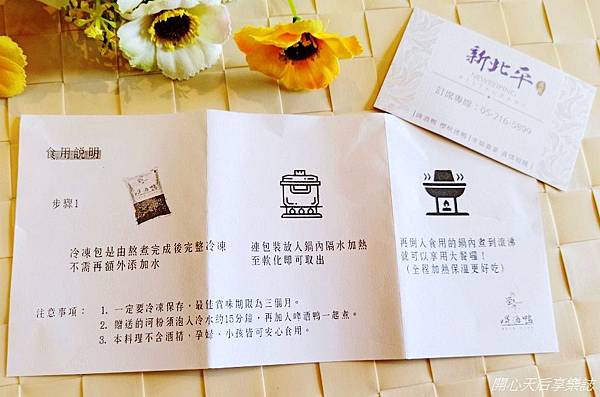 新北平
NEW BEIPING
訂席專線：05-216-5899
食用説明
步驟1
冷凍包是由熬煮完成後完整冷凍
不需再額外添加水
連包裝放入鍋內隔水加熱
至軟化即可取出
再倒入食用的鍋內煮到滾沸
就可以享用大餐囉！
(全程加熱保溫更好吃)
注意事項：
1. 一定要冷凍保存，最佳賞味期限為三個月。
2. 贈送的河粉須泡入冷水約15分鐘，再加入啤酒鴨一起煮。
3. 本料理不含酒精，孕婦、小孩皆可安心食用。
開心天后享樂誌